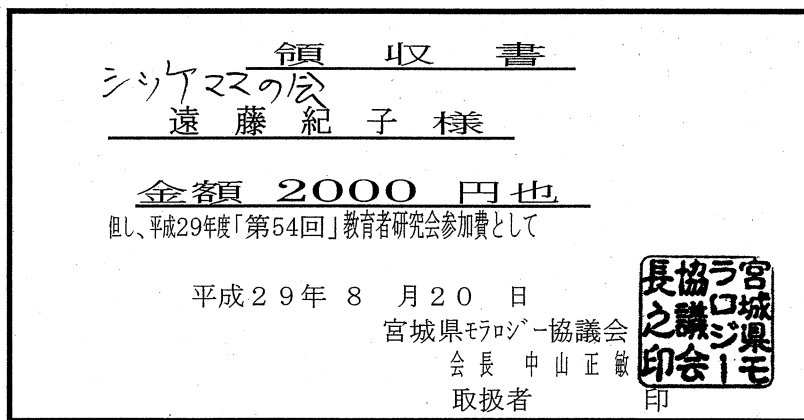 領収書
シツケママの会
遠藤紀子様
金額 2000 円也
但し、平成29年度「第54回」教育者研究会参加費として
平成29年 8 月20 日
宮城県モラロジー協議会
会長 中山正敏
取扱者 印
宮城県モラロジー協議会長之印